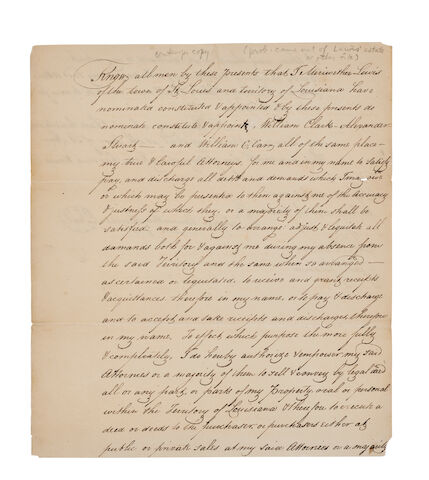 contemp copy (prob. came out of Lewis' estate
or other file)
Know all men by these presents that I Meriwether Lewis
of the town of St. Louis and territory of Louisiana have
nominated constituted & appointed & by these presents do
nominate constitute & appoint, William Clark Alexander
Stuart and William C. Carr, all of the same place
my true & lawful Attorneys for me and in my name to satisfy
pay, and discharge all debts and demands which I may owe
or which may be presented to them against me of the accuracy
& justness of which they, or a majority of them shall be
satisfied and generally to arrange adjust, & liquidate all
demands both for & against me during my absence from
the said Territory and the same when so arranged
ascertained or liquidated, to receive and grant receipts
& acquittances therefore in my name, or to pay & discharge
and to accept, and take receipts and discharges therefore
in my name, To effect which purpose the more fully
& compleately, I do hereby authorize & empower my said
Attornies or a majority of them to sell & convey by legal deed
all or any part, or parts of my Property, real or personal
within the Territory of Louisiana & therefor to execute a
deed or deeds to the purchaser, or purchasers either at
public or private sales as my said Attornees or a majority